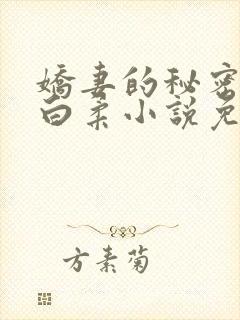 嬌妻的秘密
白柔小說免
方素菊